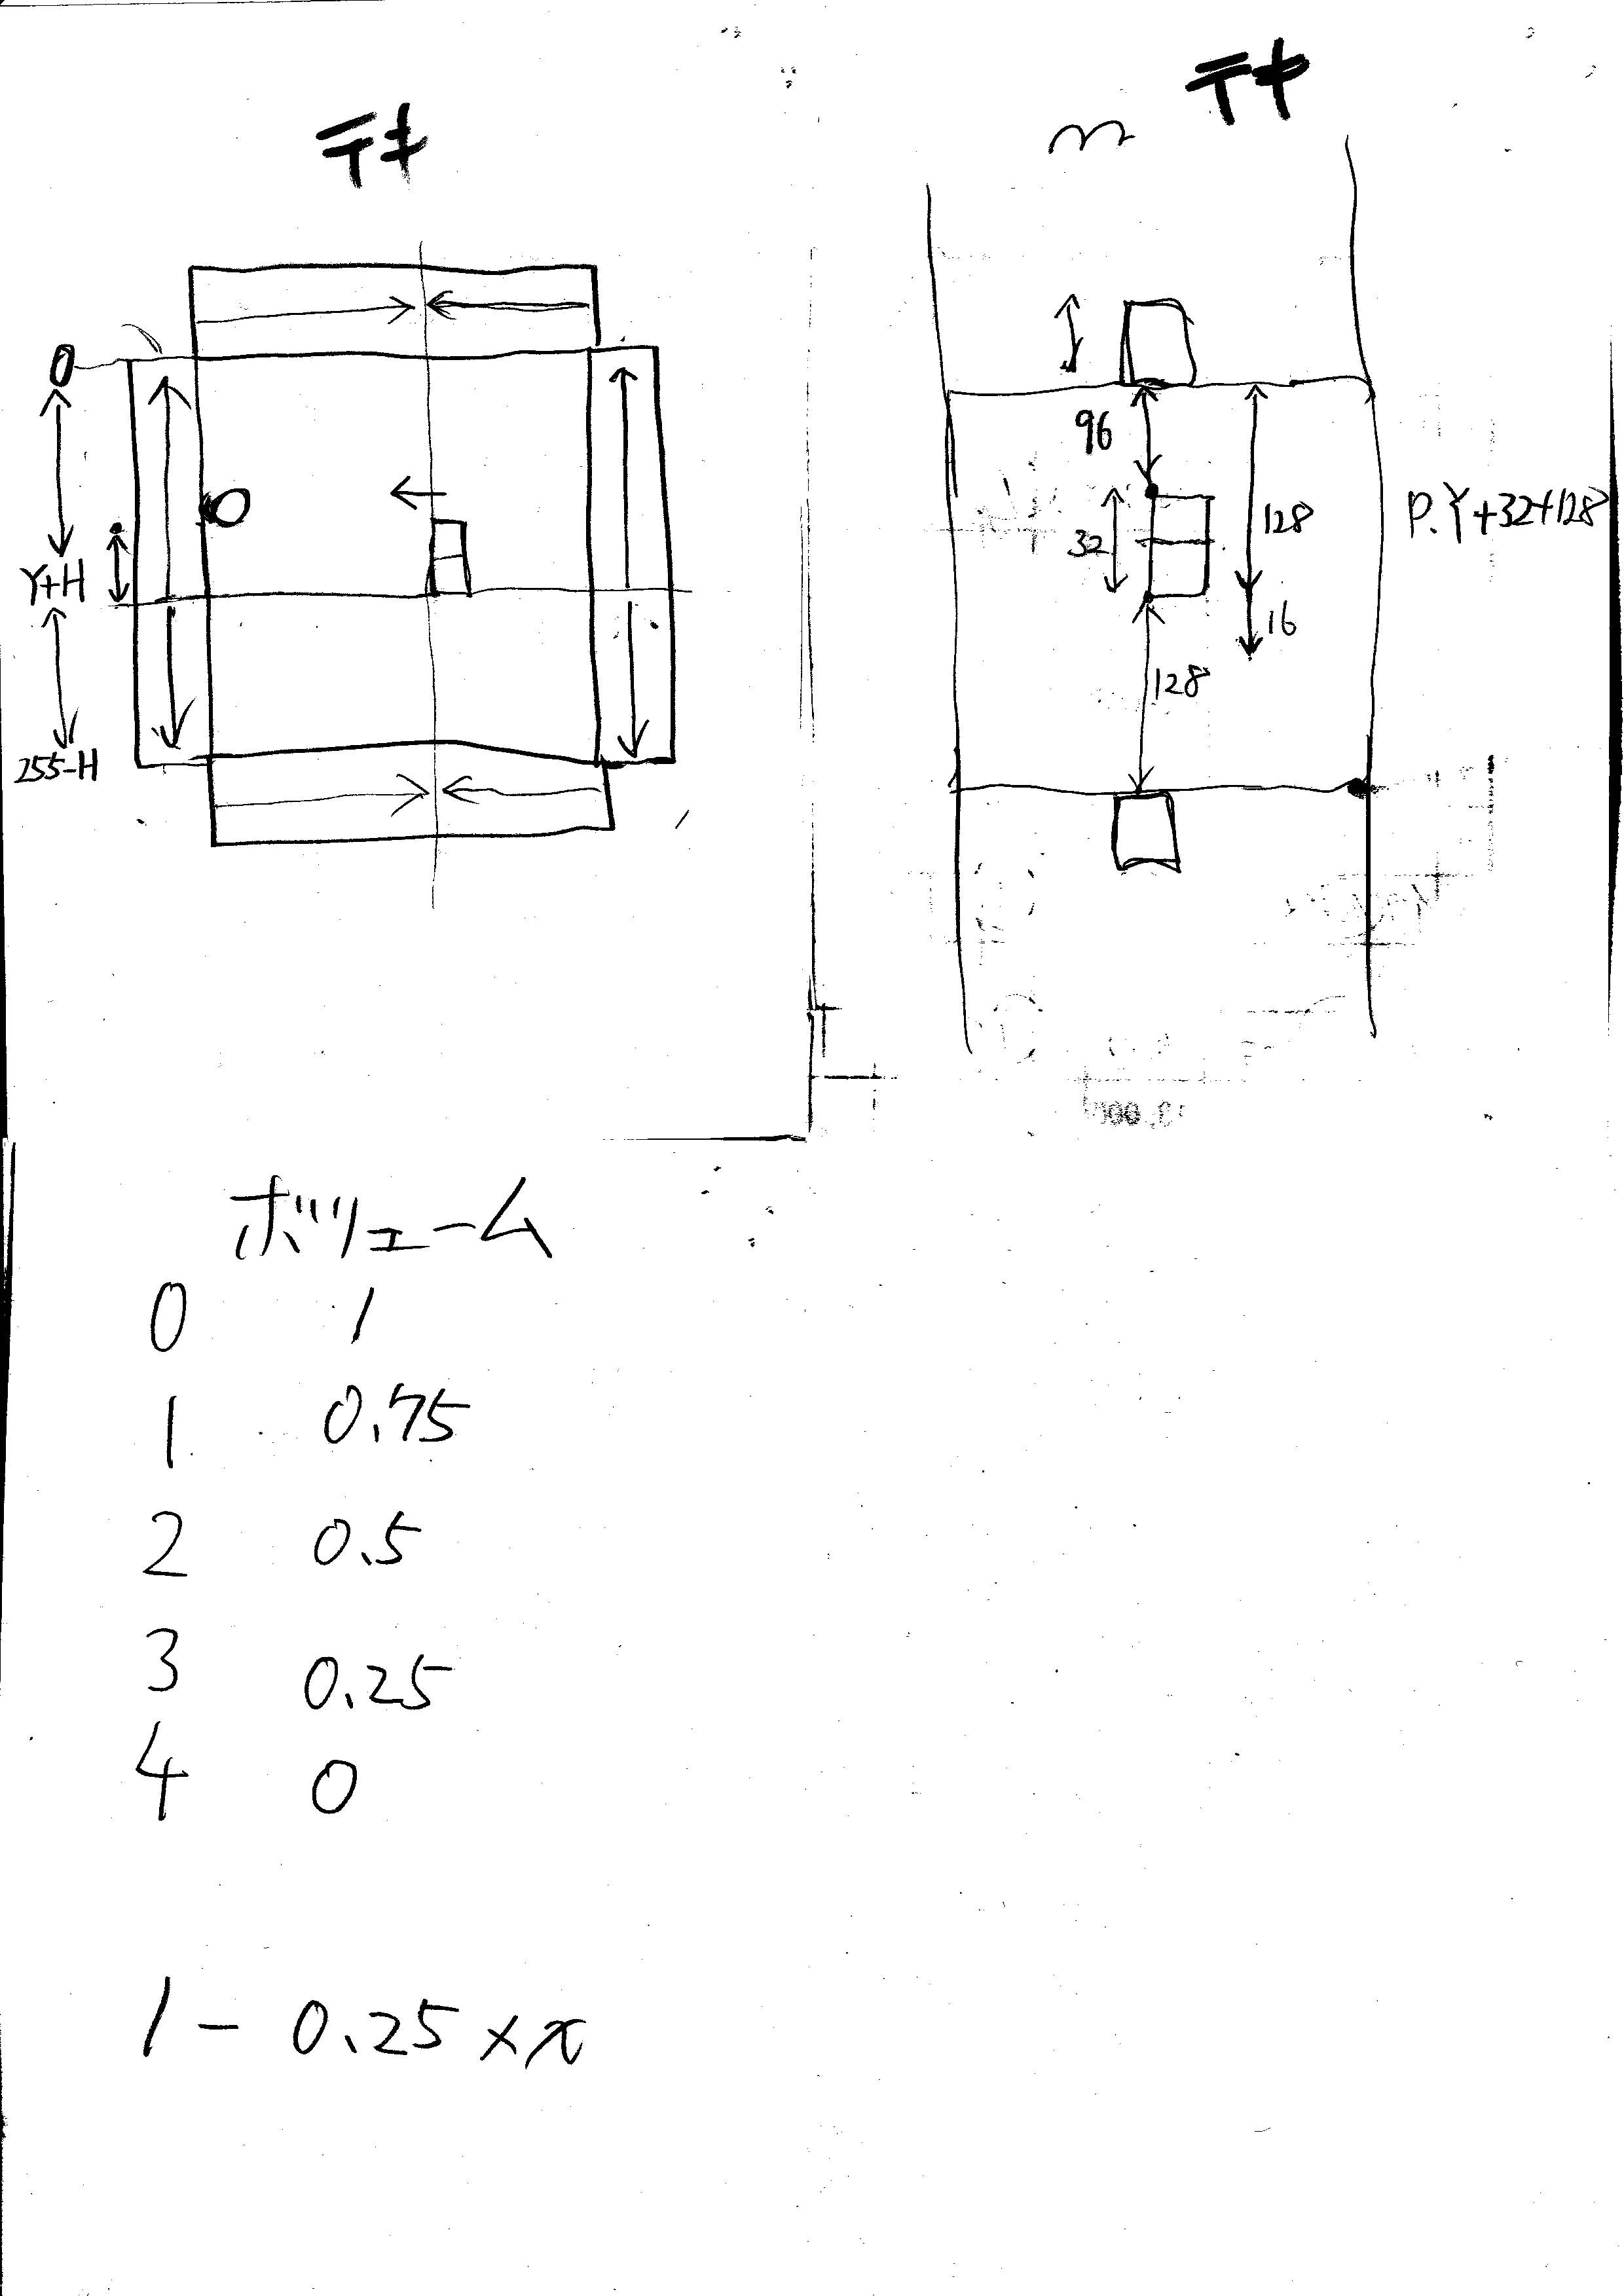 テキ
0
Y+H
255-H
テキ
96
32
128
16
128
P.Y+32+128
ボリューム
0 1
1 0.75
2 0.5
3 0.25
4 0
1-0.25×x